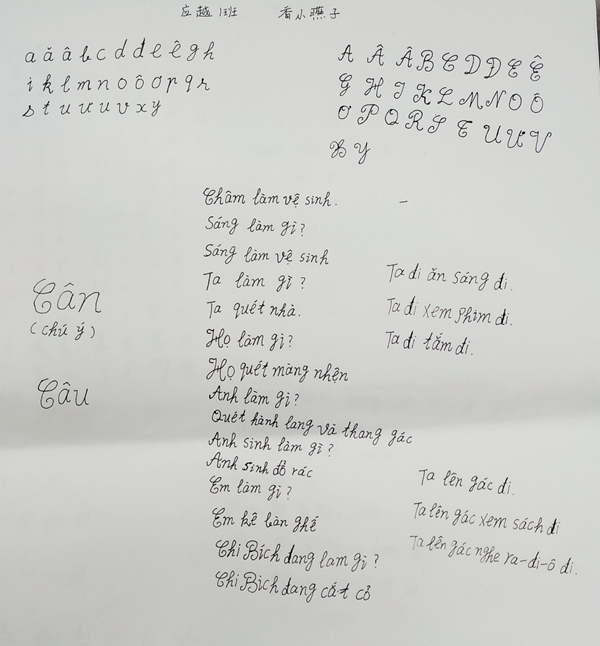 应越1班 香小燕子
a ă â b c d đ e ê g h
i k l m n o ô ơ p q r
s t u ư u v x y
A Â Â B C D Đ E Ê
G H I K L M N O Ô
Ơ P Q R S T U Ư V
X Y
Cân
(chú ý)
Câu
Châm làm vệ sinh.
Sáng làm gì?
Sáng làm vệ sinh
Ta làm gì?
Ta quét nhà.
Họ làm gì?
Họ quét màng nhện
Anh làm gì?
Quét hành lang và thang gác
Anh sinh làm gì?
Anh sinh đổ rác
Em làm gì?
Em kê bàn ghế
Chi Bích đang lam gì?
Chi Bich đang cắt cỏ
Ta đi ăn sáng đi.
Ta đi xem phim đi.
Ta đi tắm đi.
Ta lên gác đi.
Ta lên gác xem sách đi
Ta lên gác nghe ra-di-ô đi.